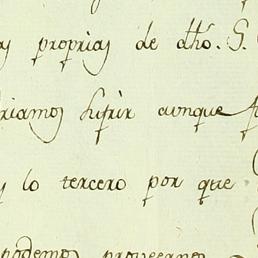 s proprias de dho. S.
riamos sufrir aunque
y lo tercero por que
podemos proveernos